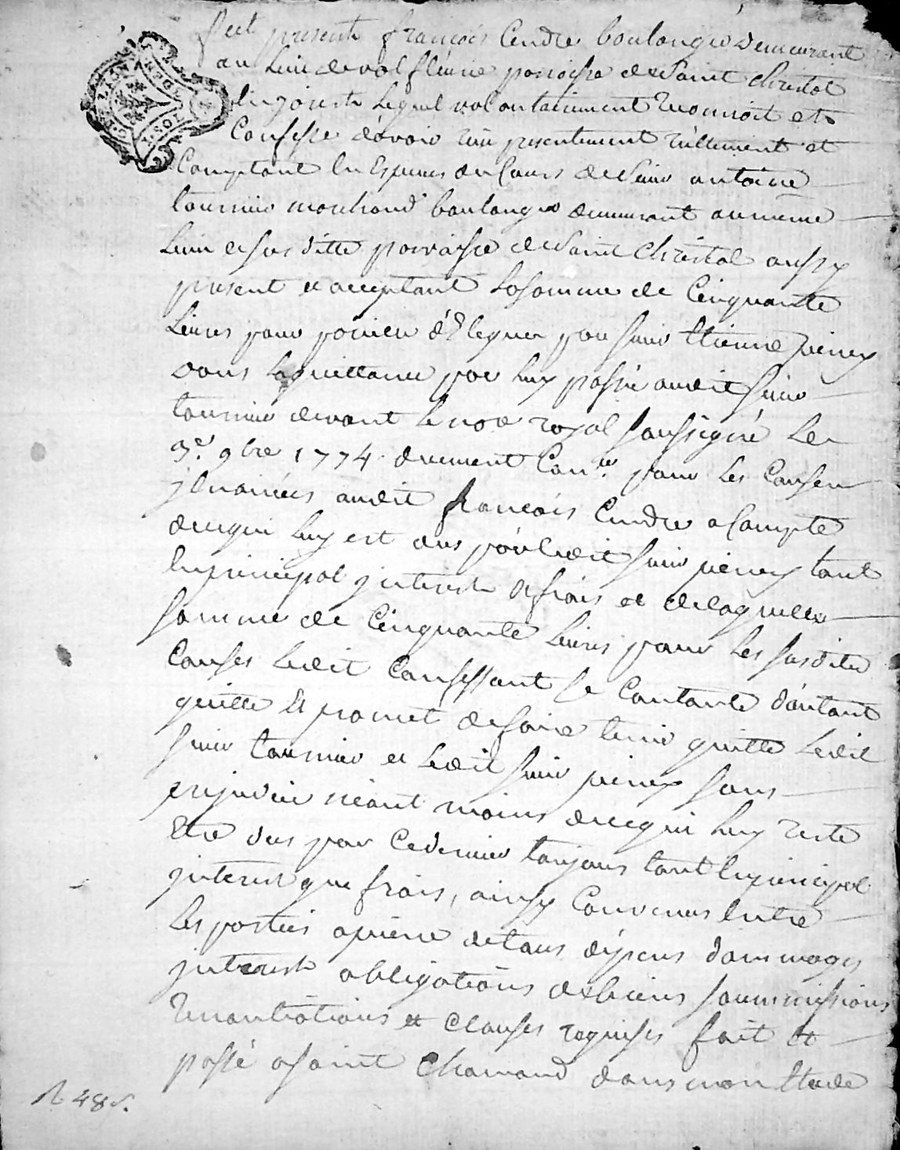 fut present francois Cendre boulangé demeurant
au lieu de valfleurie parroisse de Saint chrestol
lequel volontairement reconnoit et
Confesse d'avoir reçu presentement réellement et
Comptant en Espeses de Cours de sieur antoine
tournier marchand boulangé demeurant au meme
Lieu et susditte parroisse de Saint Chrestol aussy
present et acceptant la somme de Cinquante
Livres pour par sieur Etienne piney
dans la quittance par luy passée audit sieur
tournier devant le noe royal soussigné Le
3e. 9bre 1774. duement Conlé pour les Causes
y enoncées audit francois Cendre a Compte
de ce qui luy est dus par ledit sieur piney tant
en principal interest et frais et de laquelle
somme de Cinquante Livres pour les susdites
Causes Ledit Confessant se Contante d'autant
quitte et promet de faire tenir quitte Ledit
sieur tournier et Ledit sieur piney sans
prejudice néant moins de ce qui luy reste
Etre dus par Ce dernier toujours tant en principal
interest que frais, ainsy Convenus Entre
Les parties a peine de tous dépens dommages
interest obligations de biens soummissions
renontiations et clauses requises fait et
passé a saint Chamond dans mon Etude
R 48 s.